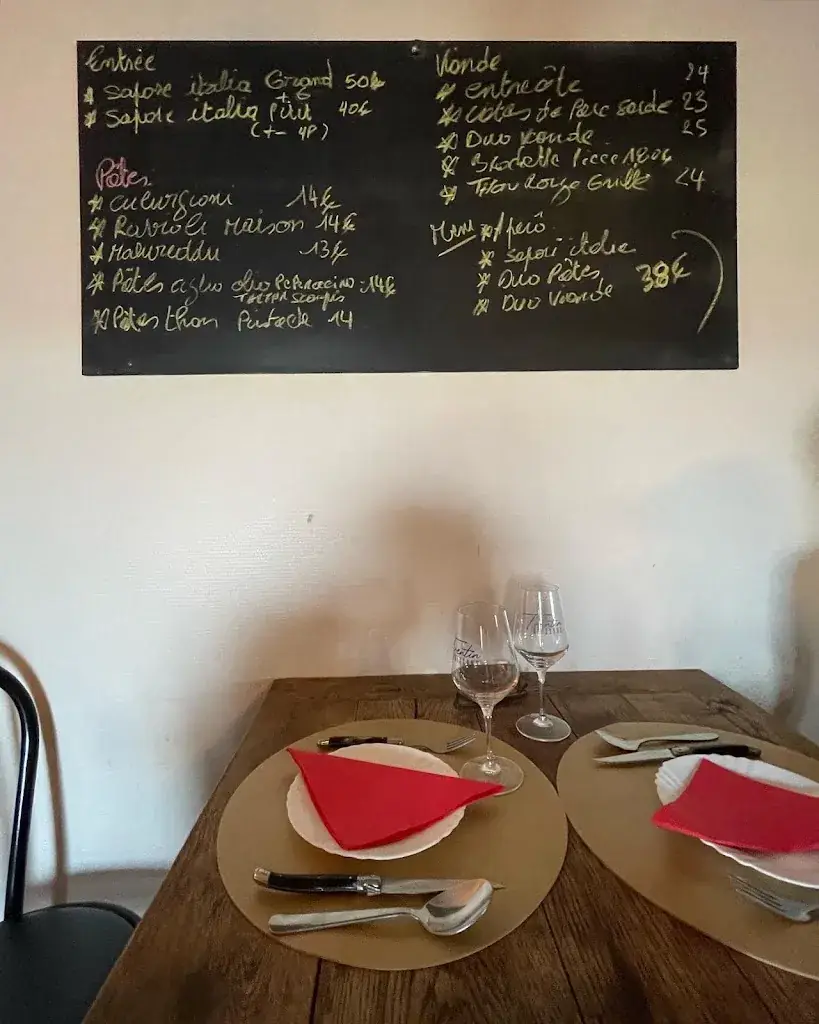 Entrée
* Sapore italia Grand 50€
+ 6
* Sapore italia Piu 40€
(+- 4P)
Pâtes
* Culurgioni 14€
* Ravioli Maison 14€
* Malureddu 13€
* Pâtes aglio olio Peperoncino 14€
* Pâtes thon Pistache 14
Viande
* entrecôte 24
* Côtes de Porc Sarde 23
* Duo Viande 25
* Piece 180g
* Thon Rouge Grillé 24
Menu
* Apero
* Sapori italia
* Duo Pâtes
* Duo Viande
38€